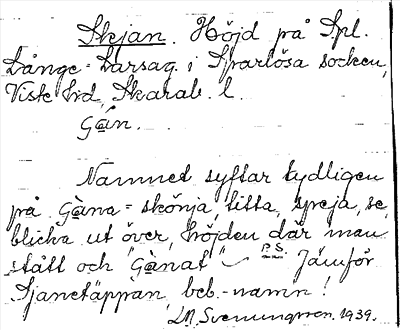 Skjan. Höjd på Spl.
Långe-Larsag. i Sparlösa socken,
Viste hrd, Skarab. l.
Gän.
Namnet syftar tydligen
på Gäna = skönja, titta, speja, se,
blicka ut över, höjden där man
stått och "Gänat" P.S. Jämför
Tjanetäppan, beb.-namn!
M. Svenungsson. 1939.